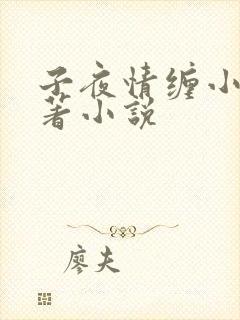 子夜情缠小
著小説
廖夫